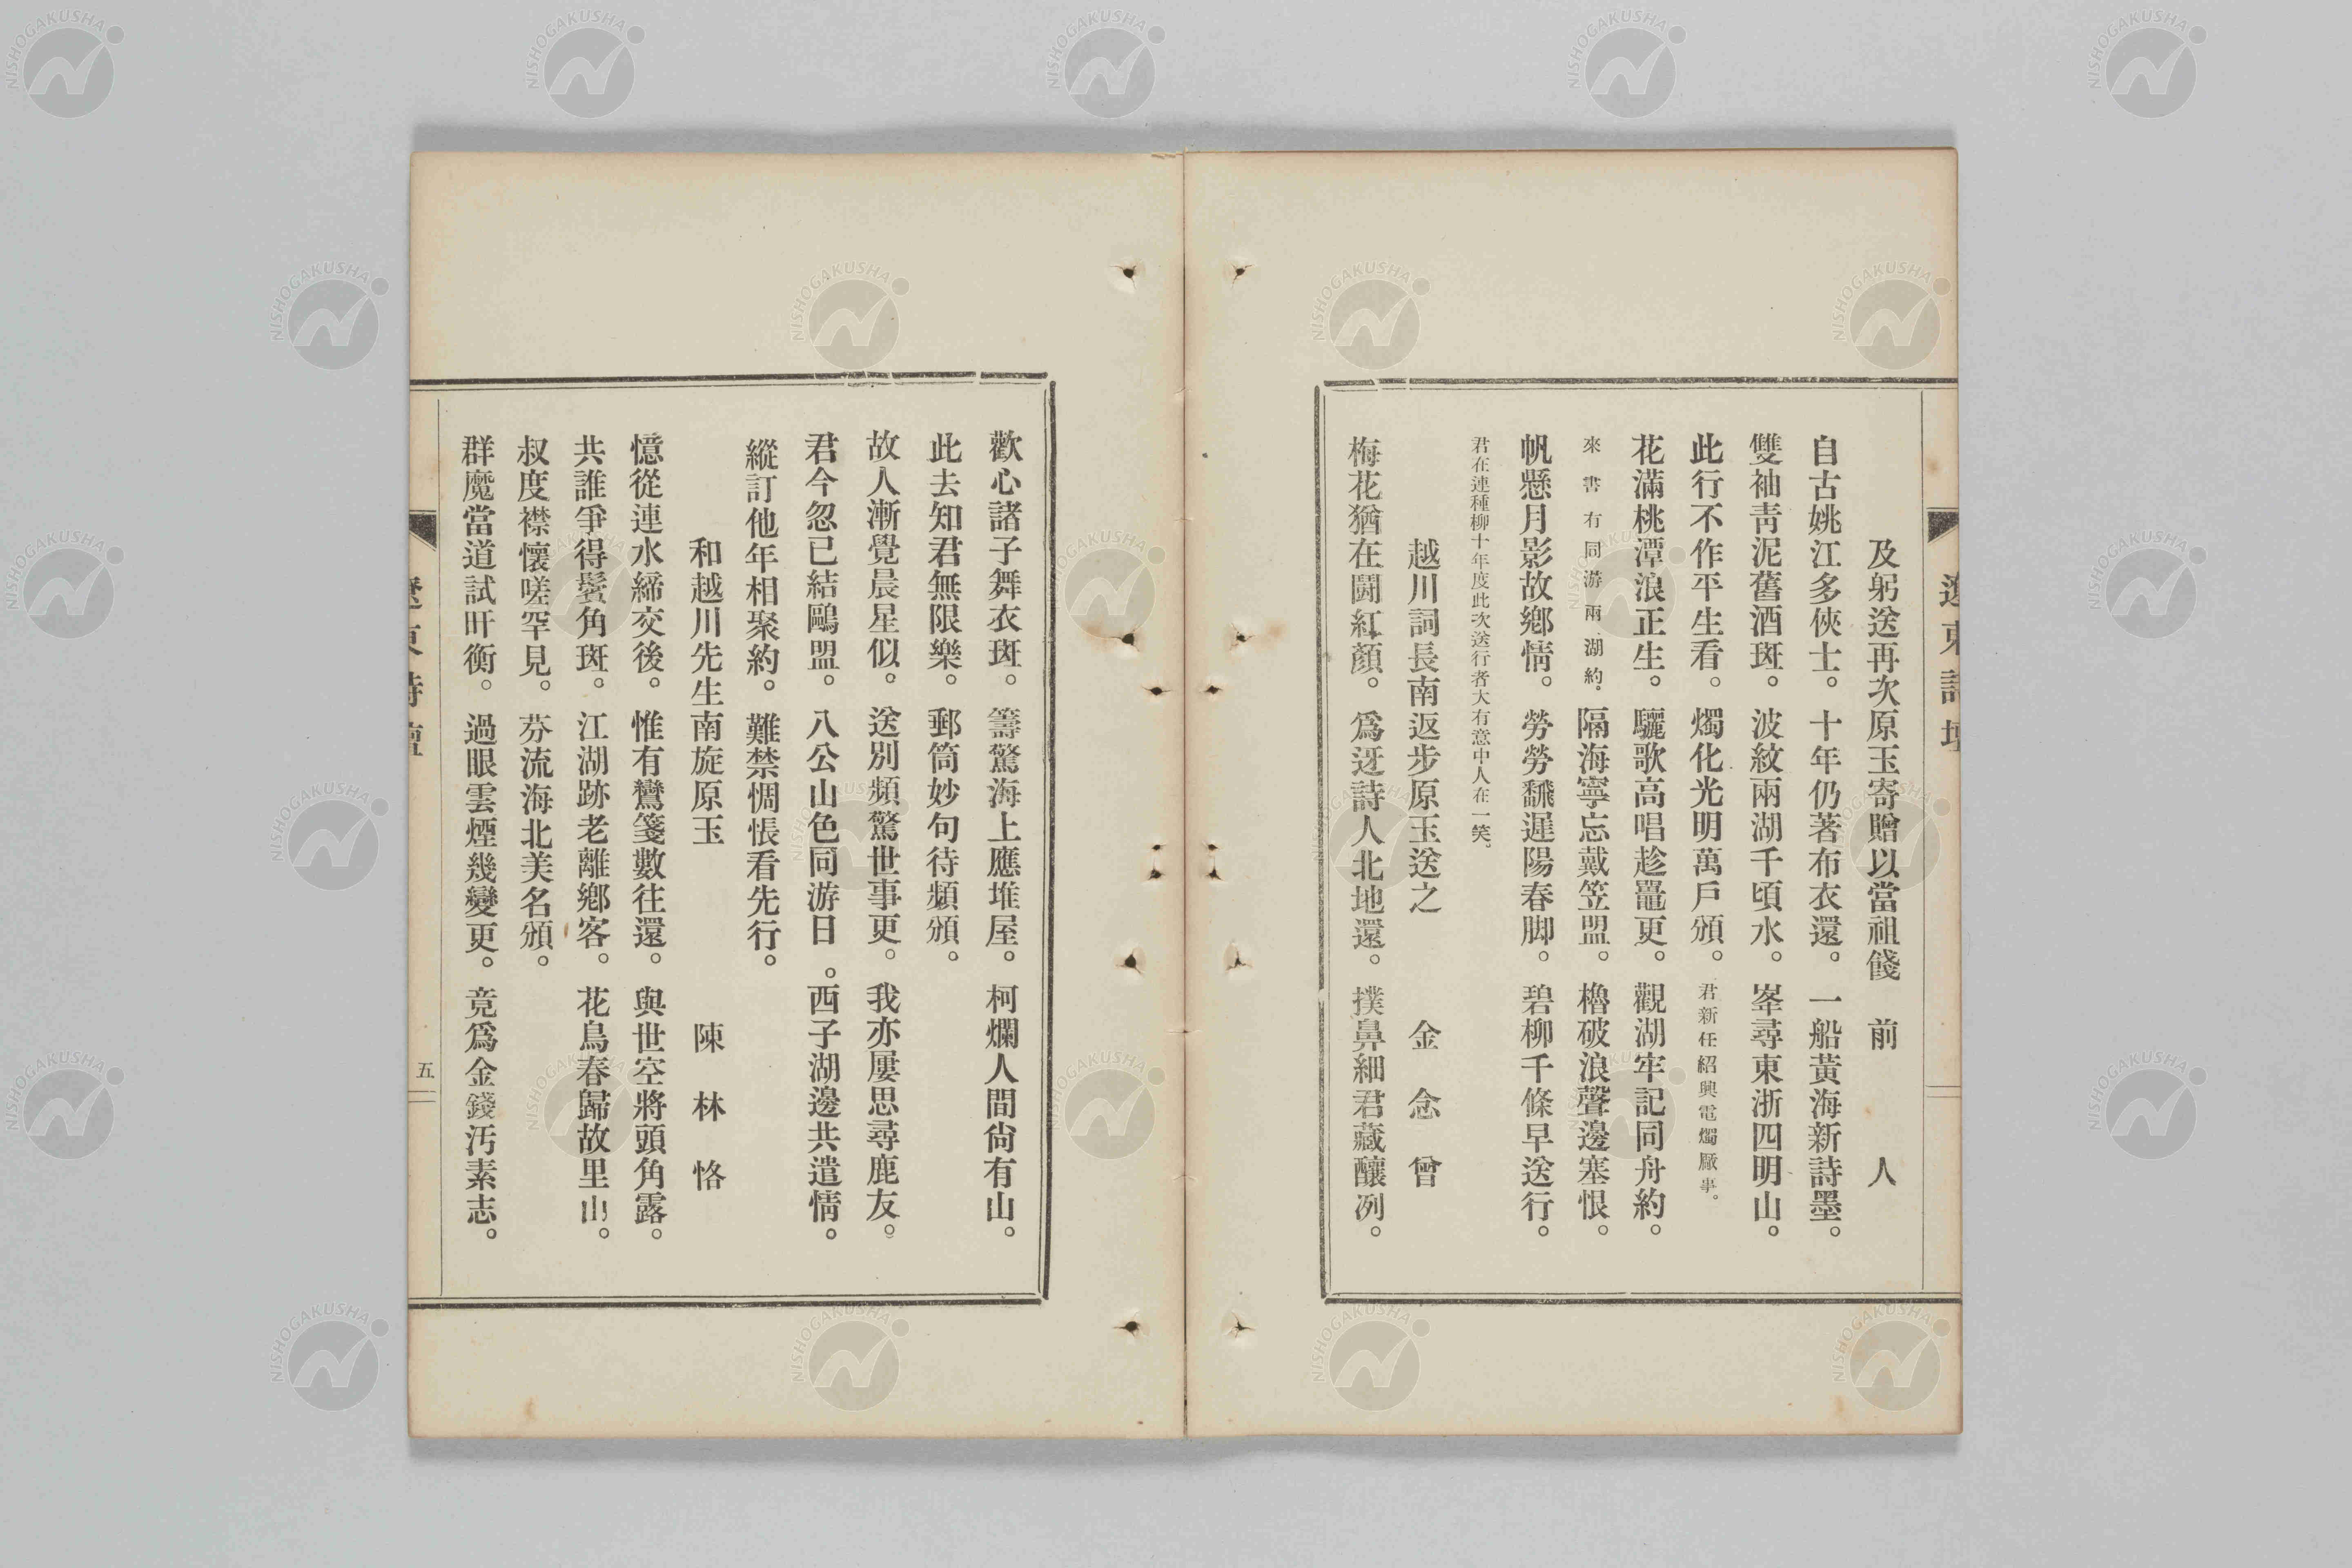 遼東詩壇
及躬送再次原玉寄贈以當祖餞　前　人
自古姚江多俠士。十年仍著布衣還。一船黃海新詩墨。
雙袖靑泥舊酒斑。波紋兩湖千頃水。峯尋東浙四明山。
此行不作平生看。燭化光明萬戶頒。君新任紹興電燭厰事。
花滿桃潭浪正生。驪歌高唱趁鼉更。觀湖牢記同舟約。
來書有同游兩湖約。隔海寧忘戴笠盟。櫓破浪聲邊塞恨。
帆懸月影故鄉情。勞勞飜遲陽春脚。碧柳千條早送行。
君在連種柳十年度此次送行者大有意中人在一笑。
越川詞長南返步原玉送之　金念曾
梅花猶在鬪紅顏。爲迓詩人北地還。撲鼻細君藏釀冽。
歡心諸子舞衣斑。籌驚海上應堆屋。柯爛人間尙有山。
此去知君無限樂。郵筒妙句待頻頒。
故人漸覺晨星似。送別頻驚世事更。我亦屢思尋鹿友。
君今忽已結鷗盟。八公山色同游日。西子湖邊共遣情。
縱訂他年相聚約。難禁惆悵看先行。
和越川先生南旋原玉　陳林恪
憶從連水締交後。惟有鸞箋數往還。與世空將頭角露。
共誰爭得鬢角斑。江湖跡老離鄉客。花鳥春歸故里山。
叔度襟懷嗟罕見。芬流海北美名頒。
群魔當道試盱衡。過眼雲煙幾變更。竟爲金錢汚素志。
遼東詩壇
五
NISHOGAKUSHA